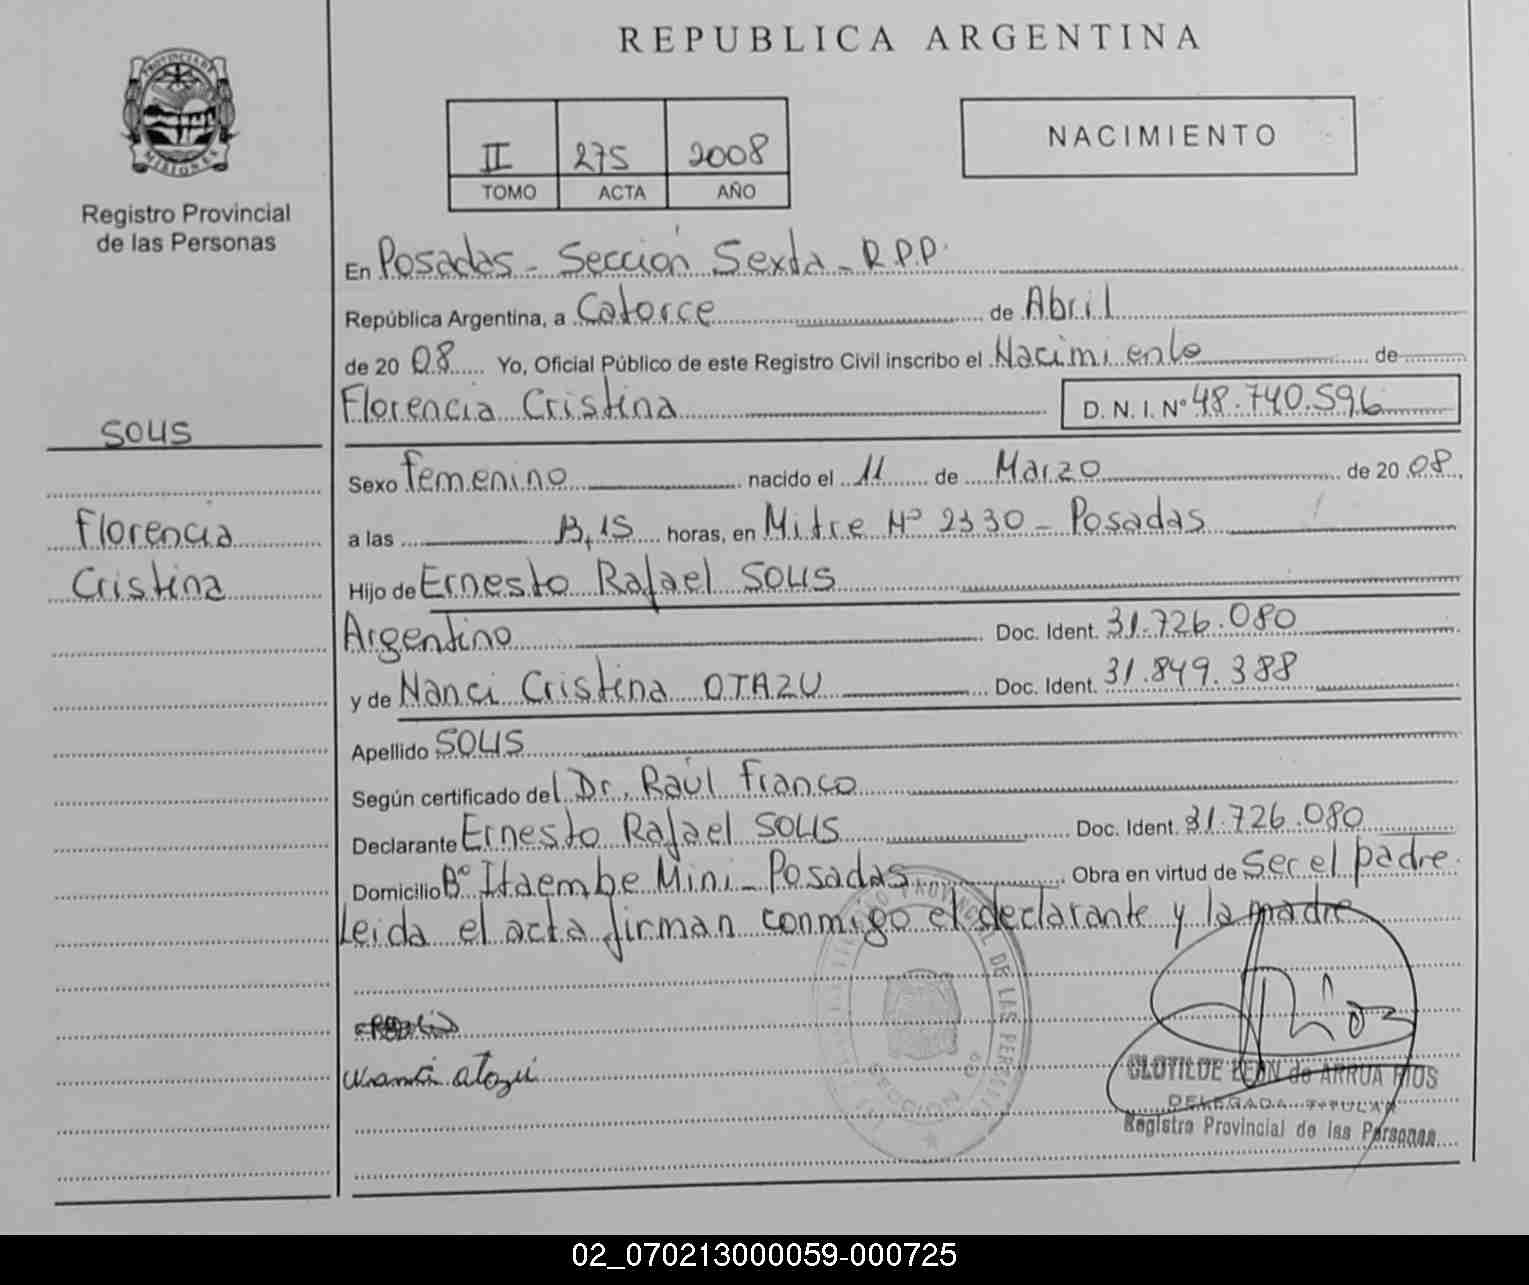 REPUBLICA ARGENTINA
PROVINCIA DE
MISIONES
Registro Provincial
de las Personas
II 275 2008
TOMO ACTA AÑO
NACIMIENTO
En Posadas - Sección Sexta - R.P.P.
República Argentina, a Catorce de Abril
de 20 08 Yo, Oficial Público de este Registro Civil inscribo el Nacimiento de
Florencia Cristina D. N. I. Nº 48.740.596
SOLIS
Sexo Femenino nacido el 11 de Marzo de 20 08
Florencia
a las 13,15 horas, en Mitre Nº 2330 - Posadas
Cristina
Hijo de Ernesto Rafael SOLIS
Argentino Doc. Ident. 31.726.080
y de Nanci Cristina OTAZU Doc. Ident. 31.849.388
Apellido SOLIS
Según certificado del Dr. Raúl Franco
Declarante Ernesto Rafael SOLIS Doc. Ident. 31.726.080
Domicilio Bº Itaembe Mini - Posadas Obra en virtud de Ser el padre.
Leida el acta firman conmigo el declarante y la madre
REGISTRO PROVINCIAL DE LAS PERSONAS
SECCION 6ª
CLOTILDE LEON de ARRUA RIOS
DELEGADA TITULAR
Registro Provincial de las Personas
02_070213000059-000725